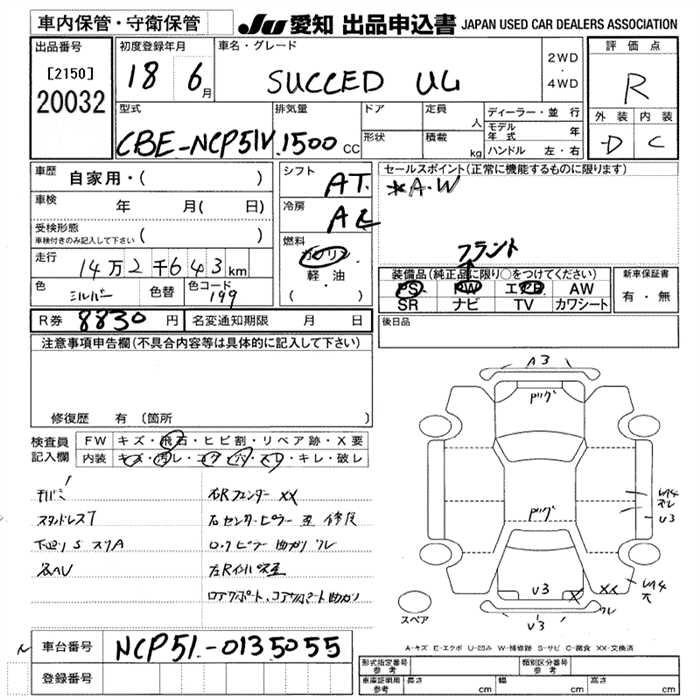 車内保管・守衛保管 JU 愛知 出品申込書 JAPAN USED CAR DEALERS ASSOCIATION
出品番号
[2150]
20032
初度登録年月
18 6月
車名・グレード
SUCCED UL
2WD
・
4WD
評価点
R
外装 内装
-D C
型式
CBE-NCP51V
排気量
1500 CC
ドア
形状
定員 人
積載 kg
ディーラー・並行
モデル年式 年
ハンドル 左・右
車歴
自家用・( )
車検 年 月( 日)
受検形態
車検付きのみ記入して下さい ( )
走行
14万2千643km
色 シルバー 色替 色コード 199
シフト AT
冷房 AC
燃料
ガソリン
軽油
( )
セールスポイント(正常に機能するものに限ります)
*A・W
フラント
装備品(純正品に限り○をつけてください)
PS PW エアB AW
SR ナビ TV カワシート
新車保証書
有・無
R券 8830円 名変通知期限 月 日
後日品
注意事項申告欄(不具合内容等は具体的に記入して下さい)
修復歴 有 (箇所
検査員記入欄
FW キズ・飛石・ヒビ割・リペア跡・X要
内装 キズ・汚レ・コゲ・穴・スレ・キレ・破レ
右Rフェンダー XX
右センターピラー 歪 修復
下廻り S スリA
各ヘハ
A3
P
P
U3
XX
U3
U3
スペア
A-キズ E-エクボ U-凹み W-補修跡 S-サビ C-腐食 XX-交換済
車台番号 NCP51-0135055
登録番号
形式指定番号 参考
類別区分番号 参考
車庫証明用 参考 長さ cm 幅 cm 高さ cm